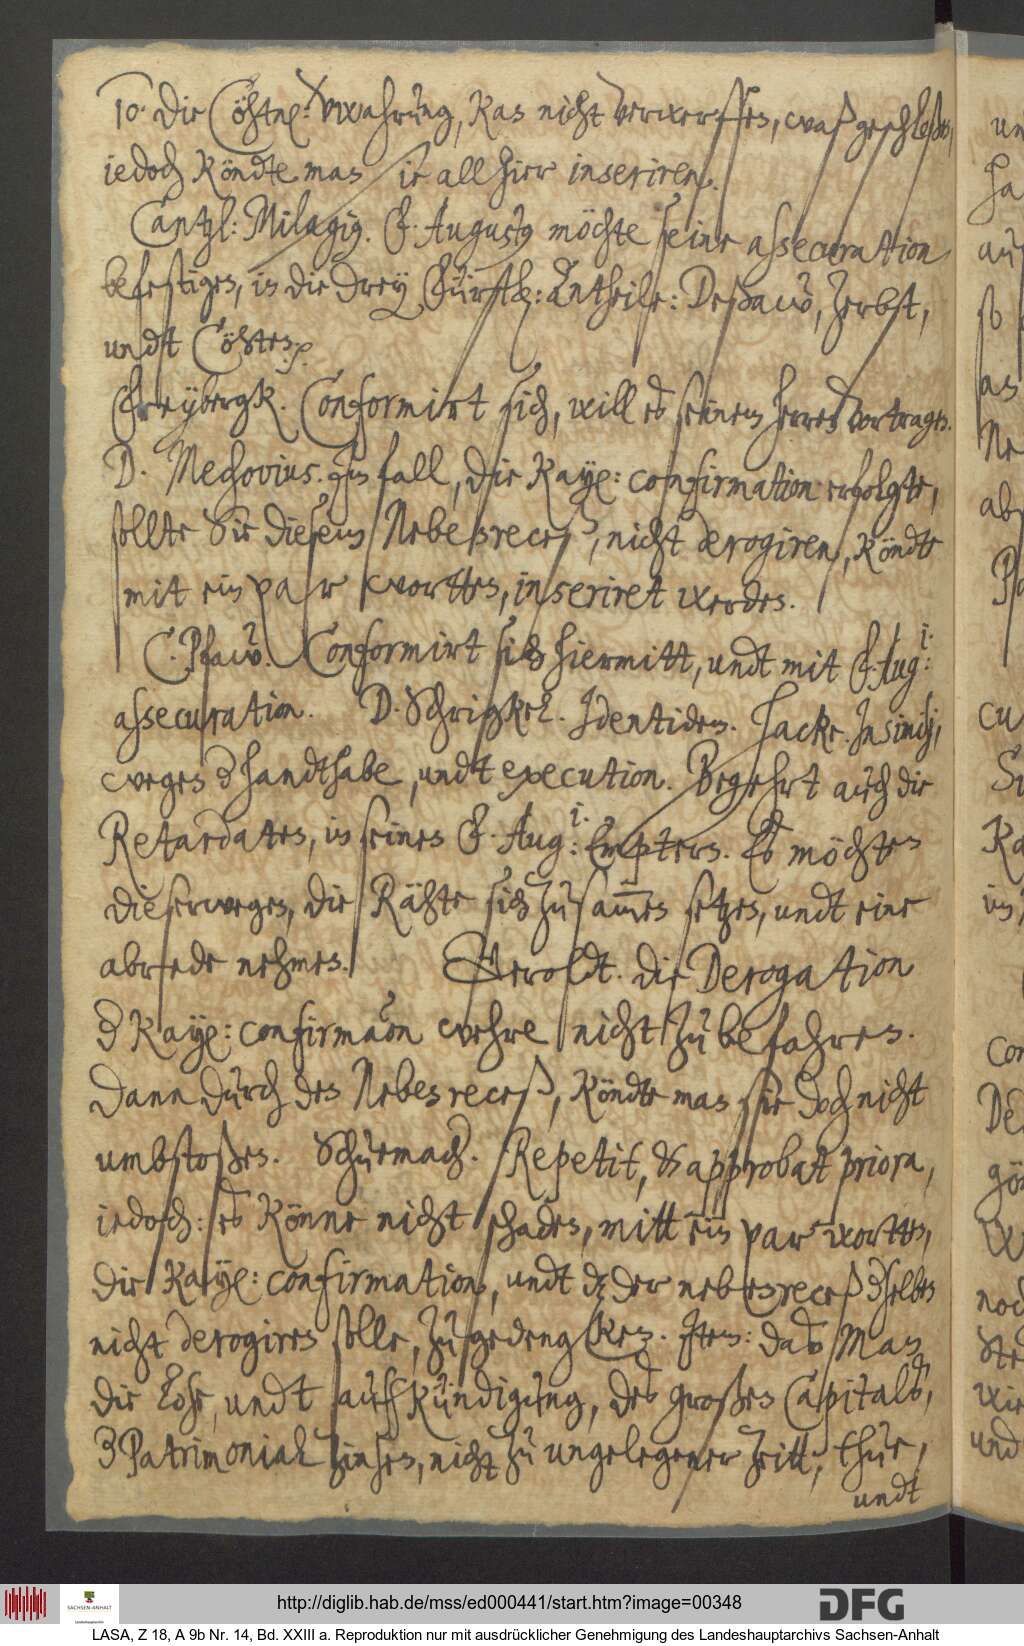 10. Die Cöhtn: verwahrung, kan nicht verwerffen, waß geschloßen,
iedoch köndte man sie allhier inseriren.
Cantzl: Milagig. F. Augustg möchte seine assecuration
befestigen, in die drey Fürstl: Antheile: Deßaw, Zerbst,
undt Cöhten.
Freybergk. Conformirt sich, will es seinem herren vortragen.
D. Mechovius. Im fall, die Kayl: confirmation erfolgte,
sollte Sie diesem Nebenreceß, nicht derogiren, köndte
mit ein par wortten, inseriret werden.
C. Pfaw. Conformirt sich hiermitt, undt mit F. Aug:i.
assecuration. D. Schrigkel. Identidem. Hacke. In simili,
wegen d handthabe, undt execution. Begehrt auch die
Retardaten, in seinen F. Aug:i. Emptern. Es möchten
dieserwegen, die Rähte sich zusam̅en setzen, undt eine
abrede nehmen. Geroldt. die Derogation
d Kayl: confirmaon wehre nicht zu befahren.
Dann durch den Nebenreceß, köndte man sie doch nicht
umbstoßen. Schürmach. Repetit, & approbat priora,
iedoch: es könne nicht schaden, mitt ein par wortten,
die Kayl: confirmation, undt dz der nebenreceß dselben
nicht derogiren solle, zu gedengken. Item: daß Man
die Lose, undt auffkündigung, des großen Capitals,
d Patrimonial zinsen, nicht zu ungelegener zeitt, thue,
undt
un
ha
auf
so
as
Ne
ab
cu
Ka
im
con
De
gö
noch
wie
und
SACHSEN-ANHALT
http://diglib.hab.de/mss/ed000441/start.htm?image=00348
DFG
LASA, Z 18, A 9b Nr. 14, Bd. XXIII a. Reproduktion nur mit ausdrücklicher Genehmigung des Landeshauptarchivs Sachsen-Anhalt